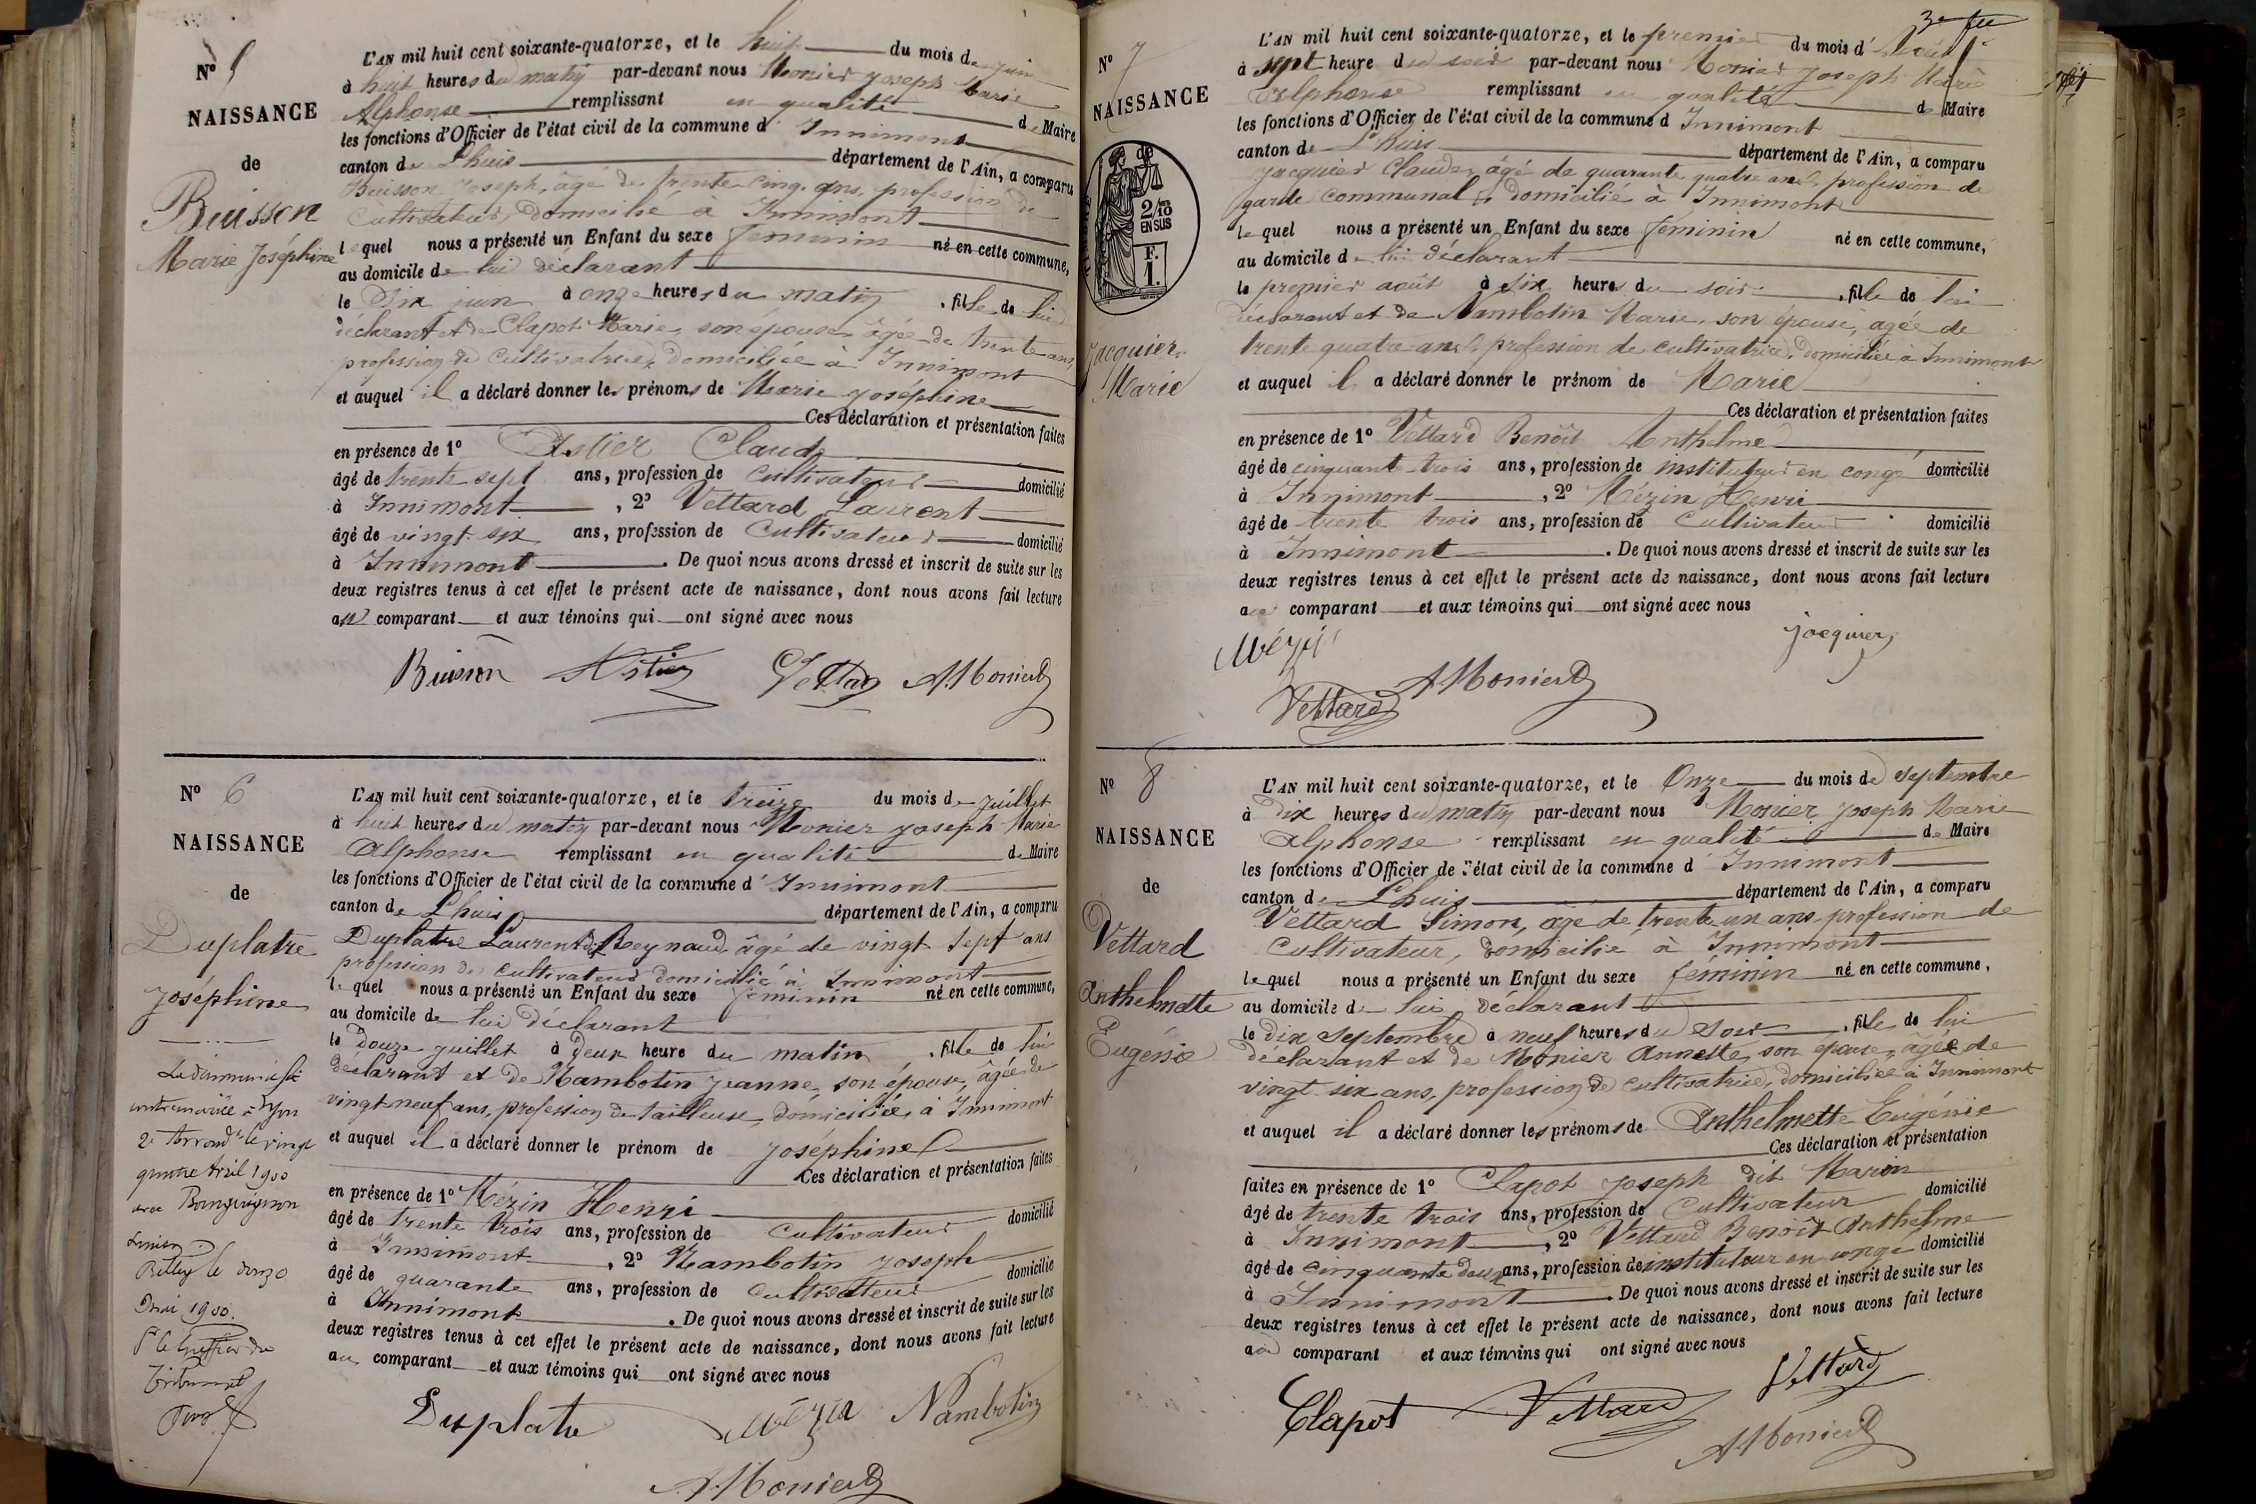 N° 5
NAISSANCE
de
Buisson
Marie Joséphine
L'AN mil huit cent soixante-quatorze, et le huit du mois de juin
à huit heures du matin par-devant nous Monier Joseph Marie
Alphonse remplissant en qualité de Maire
les fonctions d'Officier de l'état civil de la commune d' Innimont
canton de Lhuis département de l'Ain, a comparu
Buisson Joseph, âgé de trente cinq ans, profession de
Cultivateur, domicilié à Innimont
lequel nous a présenté un Enfant du sexe féminin né en cette commune,
au domicile de lui déclarant
le juin à onze heures du matin , fille de lui
déclarant et de Clapot Marie, son épouse âgée de trente ans,
profession de cultivatrice, domiciliée à Innimont
et auquel il a déclaré donner les prénoms de Marie Joséphine
Ces déclaration et présentation faites
en présence de 1° Astier Claude
âgé de trente sept ans, profession de cultivateur domicilié
à Innimont , 2° Vettard Laurent
âgé de vingt six ans, profession de Cultivateur domicilié
à Innimont . De quoi nous avons dressé et inscrit de suite sur les
deux registres tenus à cet effet le présent acte de naissance, dont nous avons fait lecture
au comparant et aux témoins qui ont signé avec nous
Buisson Astier Vettard A. Monier
N° 6
NAISSANCE
de
Duplatre
Joséphine
mariée à Lyon
2e le vingt
quatre Avril 1900
avec Bourguignon
le douze
Mai 1900.
P. le Greffier du
Tribunal
L'AN mil huit cent soixante-quatorze, et le treize du mois de juillet
à huit heures du matin par-devant nous Monier Joseph Marie
Alphonse remplissant en qualité de Maire
les fonctions d'Officier de l'état civil de la commune d' Innimont
canton de Lhuis département de l'Ain, a comparu
Duplatre Laurent dit Reynaud, âgé de vingt sept ans
profession de cultivateur domicilié à Innimont
lequel nous a présenté un Enfant du sexe féminin né en cette commune,
au domicile de lui déclarant
le Douze juillet à deux heure du matin , fille de lui
déclarant et de Nambotin Jeanne, son épouse, âgée de
vingt neuf ans, profession de tailleuse, domiciliée à Innimont
et auquel il a déclaré donner le prénom de Joséphine
Ces déclaration et présentation faites
en présence de 1° Mézin Henri
âgé de trente trois ans, profession de cultivateur domicilié
à Innimont , 2° Nambotin Joseph
âgé de quarante ans, profession de cultivateur domicilié
à Innimont . De quoi nous avons dressé et inscrit de suite sur les
deux registres tenus à cet effet le présent acte de naissance, dont nous avons fait lecture
au comparant et aux témoins qui ont signé avec nous
Duplatre Mézin Nambotin
A. Monier
3e fe
N° 7
NAISSANCE
de
2/10 EN SUS
F. 1.
Jacquier
Marie
L'AN mil huit cent soixante-quatorze, et le premier du mois d' Août
à sept heure du soir par-devant nous Monier Joseph Marie
Alphonse remplissant en qualité de Maire
les fonctions d'Officier de l'état civil de la commune d Innimont
canton de Lhuis département de l'Ain, a comparu
Jacquier Claude, âgé de quarante quatre ans, profession de
garde communal, domicilié à Innimont
lequel nous a présenté un Enfant du sexe féminin né en cette commune,
au domicile de lui déclarant
le premier août à six heures du soir , fille de lui
déclarant et de Nambotin Marie, son épouse, âgée de
trente quatre ans, profession de cultivatrice, domiciliée à Innimont
et auquel il a déclaré donner le prénom de Marie
Ces déclaration et présentation faites
en présence de 1° Vettard Benoît Anthelme
âgé de cinquante trois ans, profession de instituteur en congé domicilié
à Innimont , 2° Mézin Henri
âgé de trente trois ans, profession de Cultivateur domicilié
à Innimont . De quoi nous avons dressé et inscrit de suite sur les
deux registres tenus à cet effet le présent acte de naissance, dont nous avons fait lecture
au comparant et aux témoins qui ont signé avec nous
Mézin jacquier
Vettard A. Monier
N° 8
NAISSANCE
de
Vettard
Anthelmette
Eugénie
L'AN mil huit cent soixante-quatorze, et le Onze du mois de Septembre
à dix heures du matin par-devant nous Monier Joseph Marie
Alphonse remplissant en qualité de Maire
les fonctions d'Officier de l'état civil de la commune d Innimont
canton de Lhuis département de l'Ain, a comparu
Vettard Simon, âgé de trente un ans profession de
Cultivateur, domicilié à Innimont
lequel nous a présenté un Enfant du sexe féminin né en cette commune,
au domicile de lui déclarant
le dix Septembre à neuf heures du soir , fille de lui
déclarant et de Monier Annette, son épouse, âgée de
vingt six ans, profession de cultivatrice, domiciliée à Innimont
et auquel il a déclaré donner les prénoms de Anthelmette Eugénie
Ces déclaration et présentation
faites en présence de 1° Clapot Joseph dit Marin
âgé de trente trois ans, profession de Cultivateur domicilié
à Innimont , 2° Vettard Benoît Anthelme
âgé de cinquante deux ans, profession de instituteur en congé domicilié
à Innimont . De quoi nous avons dressé et inscrit de suite sur les
deux registres tenus à cet effet le présent acte de naissance, dont nous avons fait lecture
au comparant et aux témoins qui ont signé avec nous
Clapot Vettard Vettard
A. Monier